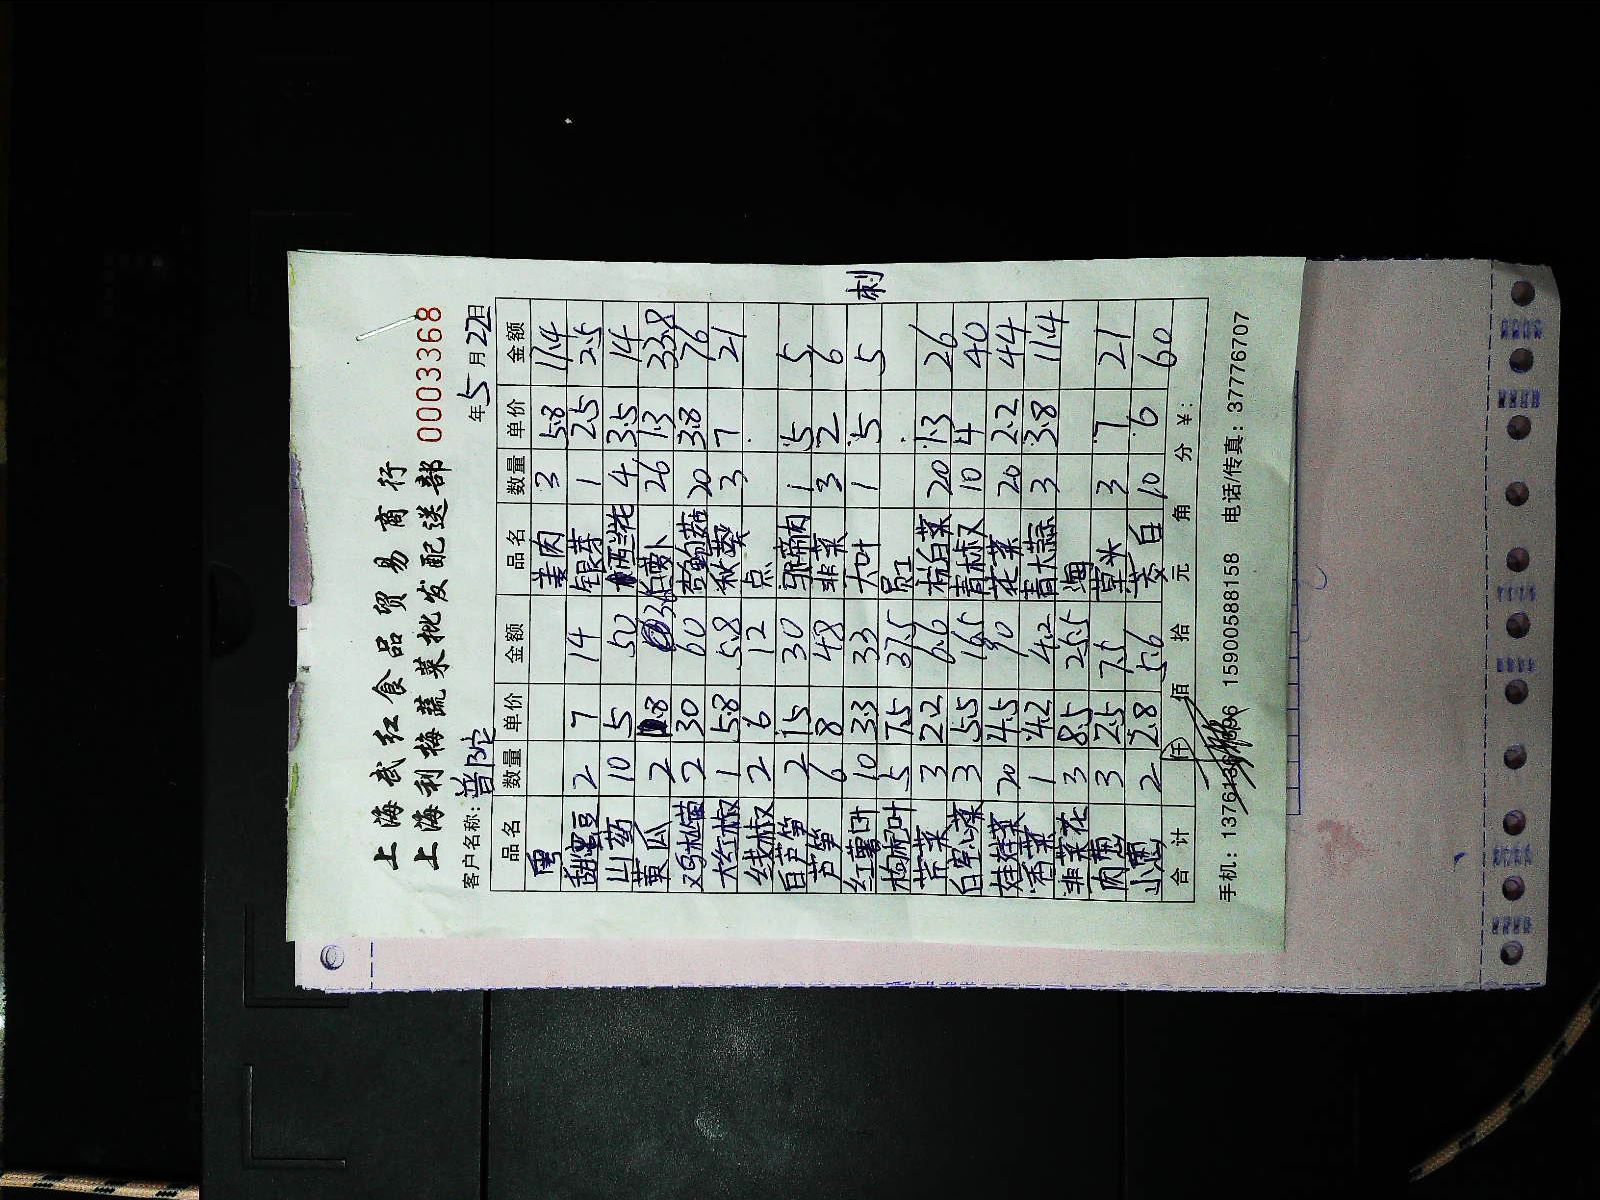 上海武红食品贸易商行
上海利梅蔬菜批发配送部 0003368
客户名称: 普陀 年 5 月 22 日
品名 数量 单价 金额 品名 数量 单价 金额
姜肉 3 5.8 17.4
2 7 14 银芽 1 2.5 2.5
山药 10 5 50 西兰花 4 3.5 14
黄瓜 2 1.8 3.6 白萝卜 26 1.3 33.8
2 30 60 杏鲍菇 20 3.8 76
大红椒 1 5.8 5.8 秋葵 3 7 21
线椒 2 6 12 点
白芦笋 2 15 30 马蹄肉 1 5 5
芦笋 6 8 48 韭菜 3 2 6
红薯叶 10 3.3 33 大叶 1 5 5 刺
枸杞叶 5 7.5 37.5 员工
芹菜 3 2.2 6.6 杭白菜 20 1.3 26
白空心菜 3 5.5 16.5 青椒 10 4 40
娃娃菜 20 4.5 90 花菜 20 2.2 44
香菜 1 4.2 4.2 青大蒜 3 3.8 11.4
韭菜花 3 8.5 25.5 海
肉葱 3 2.5 7.5 草头 3 7 21
小葱 2 2.8 5.6 茭白 10 6 60
合计 仟 佰 拾 元 角 分 ￥:
手机: 15900588158 电话/传真: 37776707